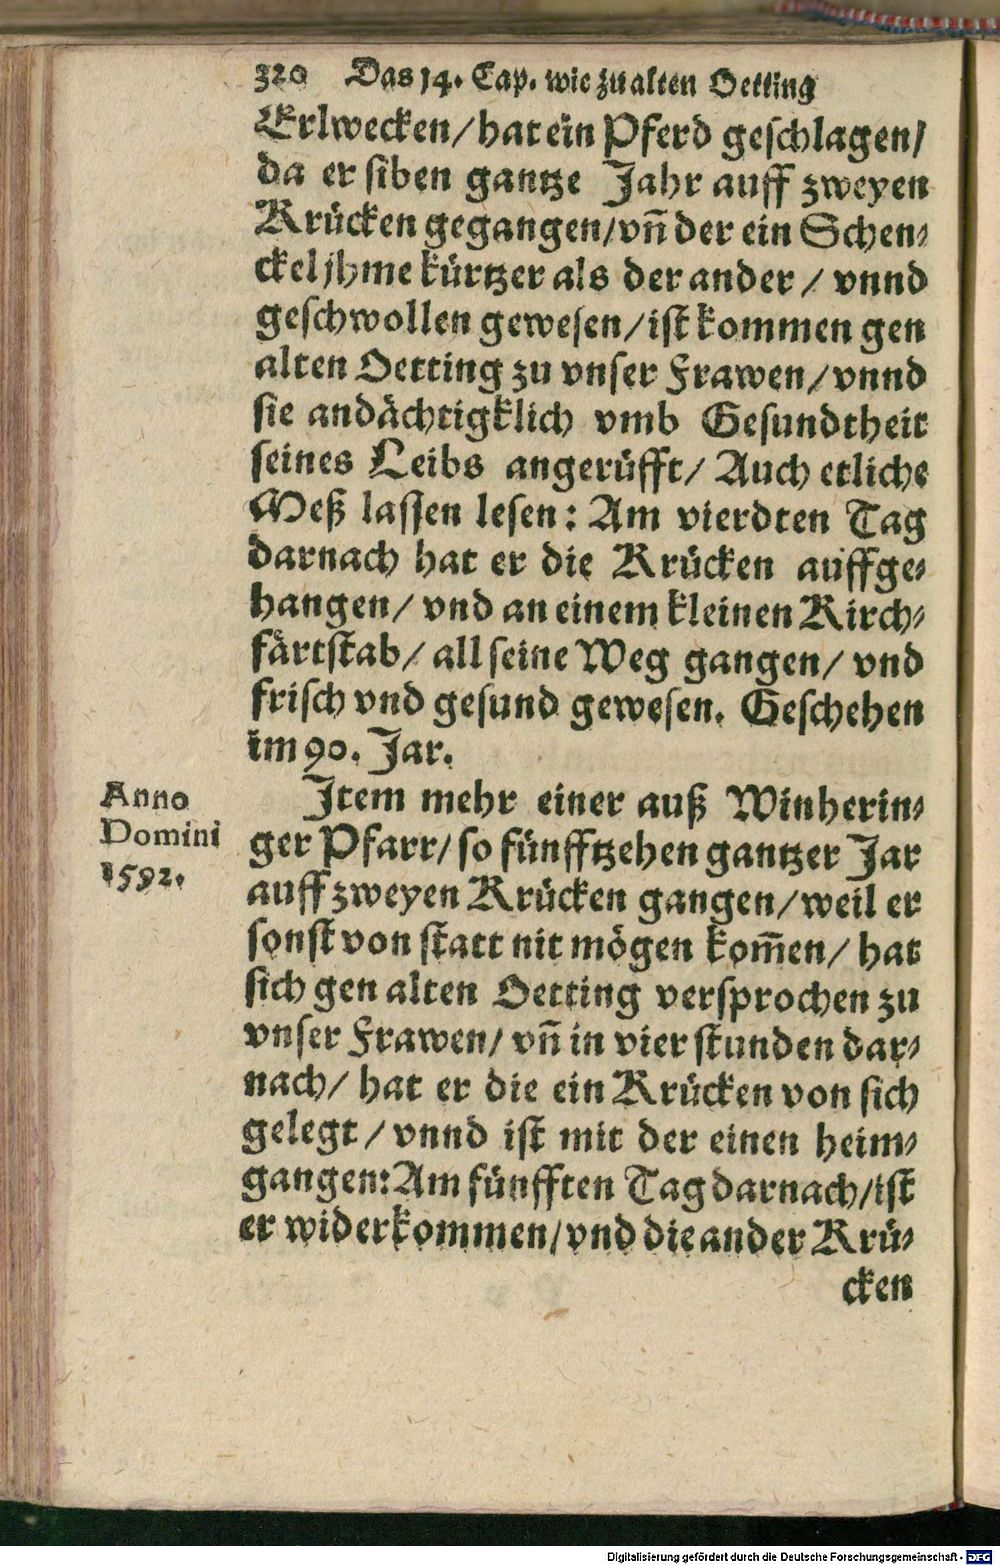 320 Das 14. Cap. wie zu alten Oetting
Erlwecken/ hat ein Pferd geschlagen/
da er siben gantze Jahr auff zweyen
Krücken gegangen/ vn̄ der ein Schen-
ckel jhme kürtzer als der ander / vnnd
geschwollen gewesen/ ist kommen gen
alten Oetting zu vnser Frawen/ vnnd
sie andächtigklich vmb Gesundtheit
seines Leibs angerüfft/ Auch etliche
Meß lassen lesen: Am vierdten Tag
darnach hat er die Krücken auffge-
hangen/ vnd an einem kleinen Kirch-
färtstab/ all seine Weg gangen/ vnd
frisch vnd gesund gewesen. Geschehen
im 90. Jar.
Anno
Domini
1592.
Item mehr einer auß Winherin-
ger Pfarr/ so fünfftzehen gantzer Jar
auff zweyen Krücken gangen/ weil er
sonst von statt nit mögen kom̄en/ hat
sich gen alten Oetting versprochen zu
vnser Frawen/ vn̄ in vier stunden dar-
nach/ hat er die ein Krücken von sich
gelegt / vnnd ist mit der einen heim-
gangen: Am fünfften Tag darnach/ ist
er widerkommen/ vnd die ander Krü-
cken
Digitalisierung gefördert durch die Deutsche Forschungsgemeinschaft - DFG